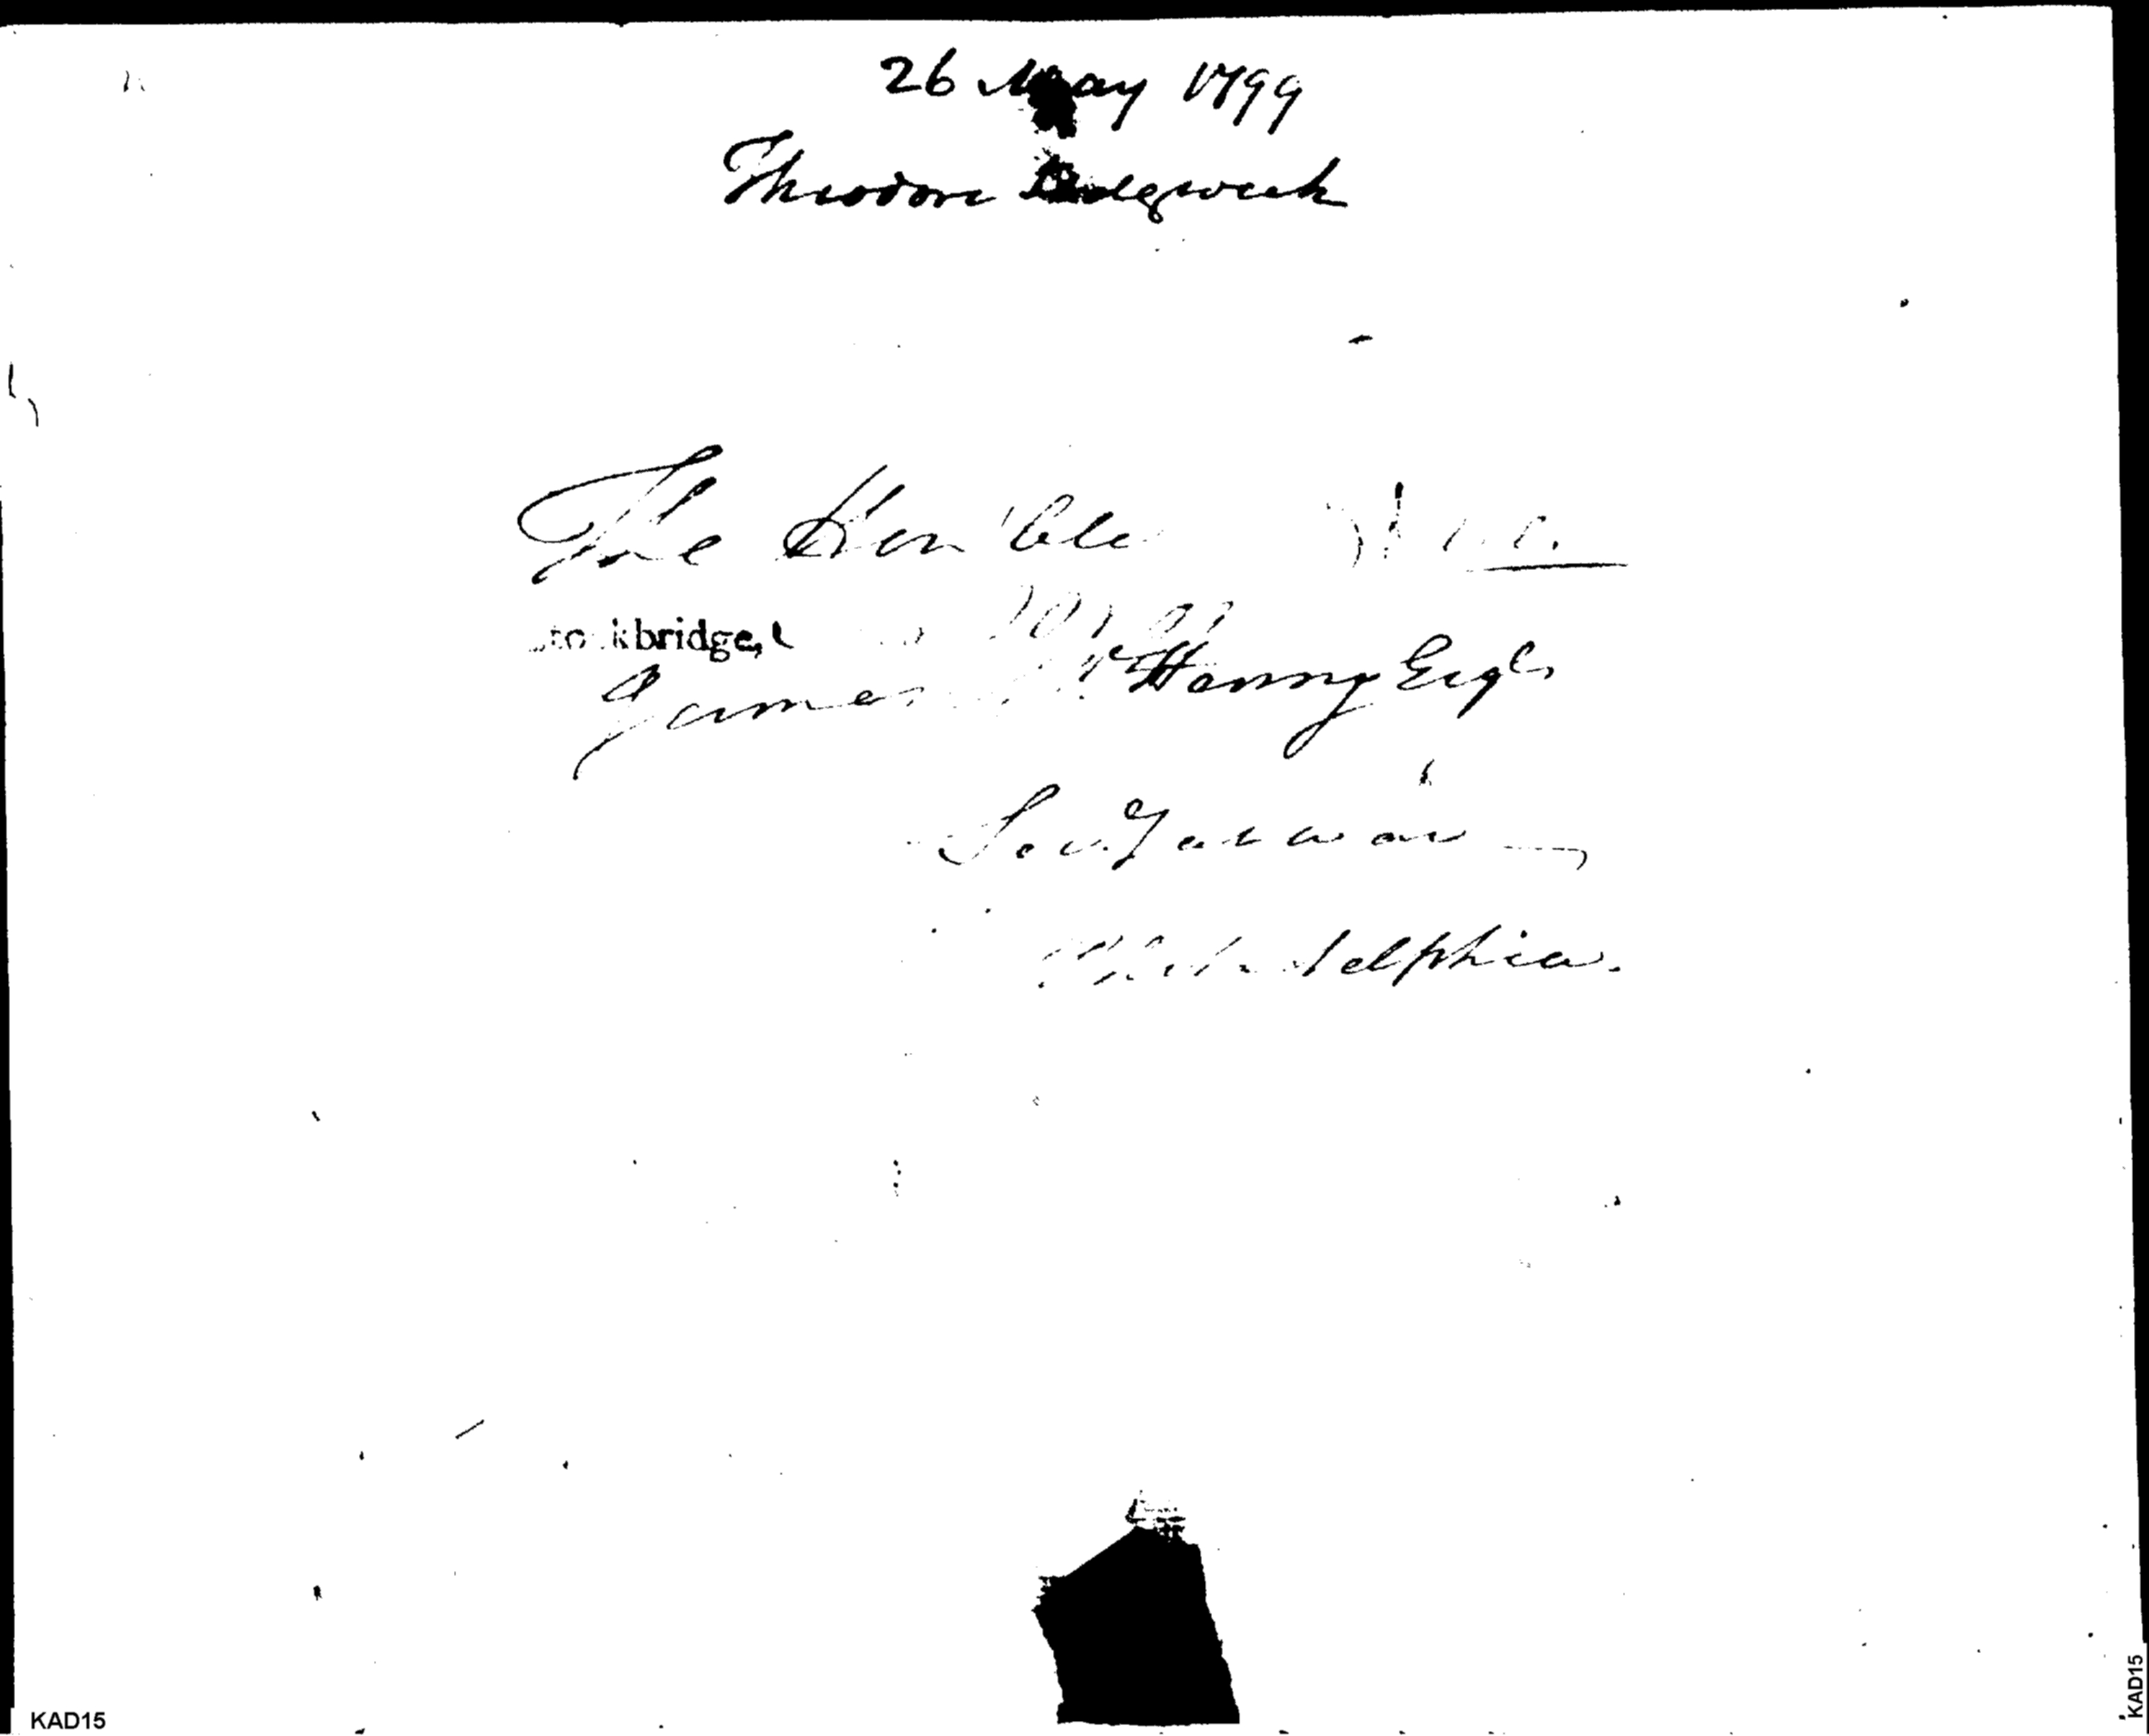 26 May 1799
Theodore Sedgwick
The Hon'ble
Stockbridge,
James McHenry Esqr.
Sec. Y at war
Philadelphia.
KAD15
KAD15